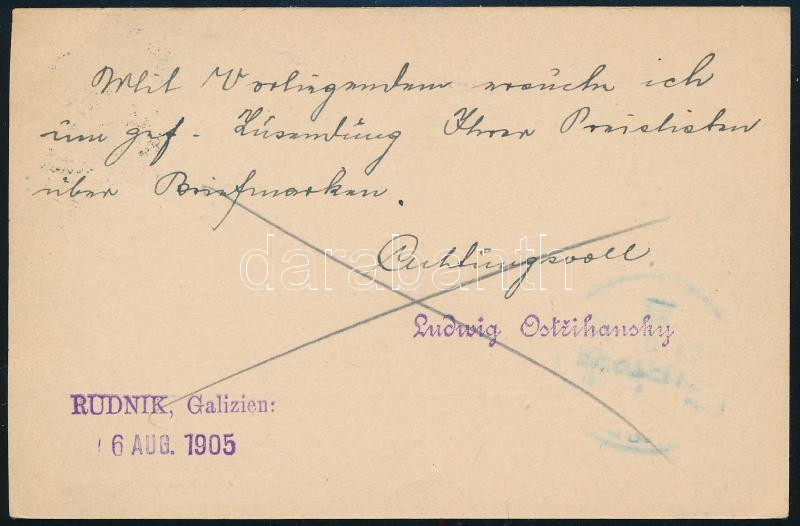 Mit Vorliegendem ersuche ich
um gef. Zusendung Ihrer Preislisten
über Briefmarken.
Achtungsvoll.
darabanth
Ludwig Ostřihansky
RUDNIK, Galizien:
6 AUG. 1905